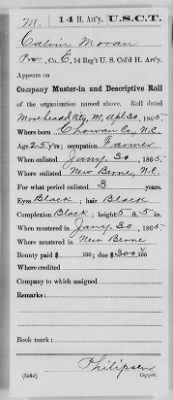 M. | 14 H. Art'y. | U.S.C.T.
Calvin Moran
Pvt., Co. E, 14 Reg't U. S. Col'd H. Art'y.
Appears on
Company Muster-in and Descriptive Roll
of the organization named above. Roll dated
Morehead City, N.C., Apl. 30, 1865.
Where born Chowan Co., N.C.
Age 25 y'rs; occupation Farmer
When enlisted Jany. 30, 1865.
Where enlisted New Berne, N.C.
For what period enlisted 3 years.
Eyes Black; hair Black
Complexion Black; height 5 ft. 5 in.
When mustered in Jany. 30, 1865.
Where mustered in New Berne
Bounty paid $ 100; due $ 300 100
Where credited
Company to which assigned
Remarks:
Book mark:
Philipsen
Copyist.